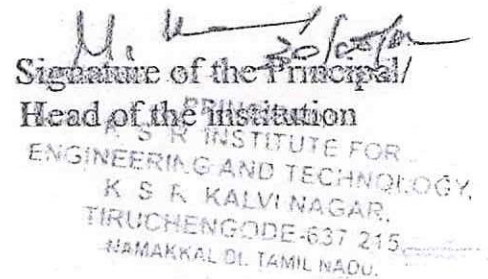 Signature of the Principal/
Head of the institution
K S R INSTITUTE FOR
ENGINEERING AND TECHNOLOGY,
K S R KALVI NAGAR,
TIRUCHENGODE-637 215,
NAMAKKAL Dt. TAMIL NADU.